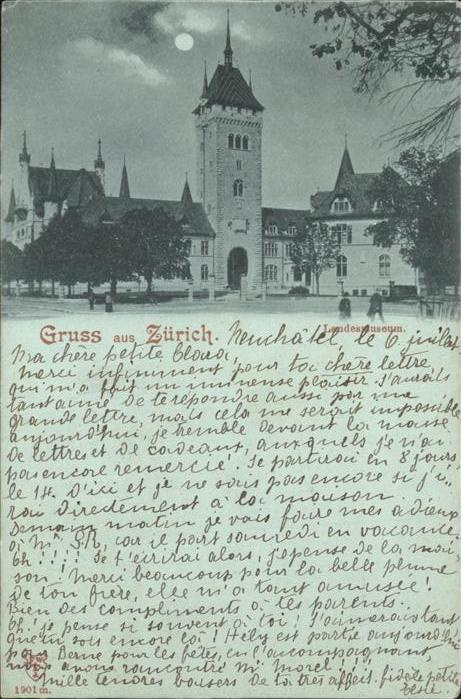 Landesmuseum.
Gruss aus Zürich.
Neuchâtel, le 6 juillet
Ma chère petite Clara,
Merci infiniment pour ta chère lettre,
qui m'a fait un immense plaisir. J'aurais
tant aimé te répondre aussi par une
grande lettre, mais cela me serait impossible
aujourd'hui, je tremble devant la masse
de lettres et de cadeaux, auxquels je n'ai
pas encore remercié. Je partirai en 8 jours
le 14. d'ici et je ne sais pas encore si j'i-
rai directement à la maison.
Demain matin je vais faire mes adieux
à Mr. S.R., car il part samedi en vacance.
Oh!!!! Je t'écrirai alors, je pense de la mai-
son. Merci beaucoup pour la belle plume
de ton frère, elle m'a tant amusée!
Bien des compliments à tes parents.
Oh! je pense si souvent à toi! J'aimerais tant
que tu sois encore là! Hély est partie aujourd'hui
pour Berne pour les fêtes, en l'accompagnant
nous avons rencontré Mr Morel!!!!
Mille tendres baisers de ta très affect. fidèle petite
1901 m.